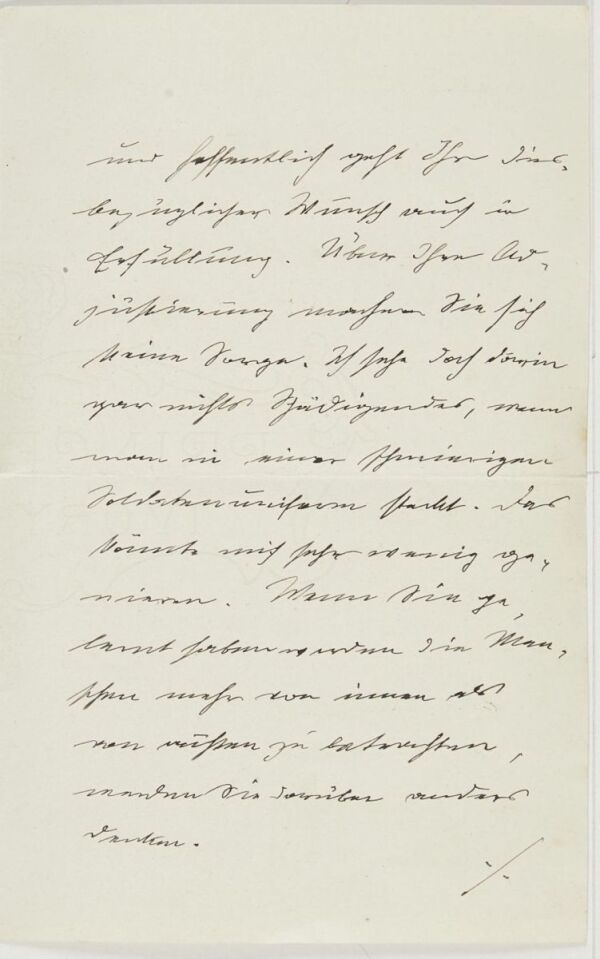 und hoffentlich geht Ihr dies-
bezüglicher Wunsch auch in
Erfüllung. Über Ihre Ad-
justierung machen Sie sich
keine Sorge. Ich sehe doch darin
gar nichts Schädigendes, wenn
man in einer schmierigen
Soldatenuniform steckt. Das
könnte mich sehr wenig ge-
nieren. Wenn Sie ge-
lernt haben werden die Men-
schen mehr von innen als
von außen zu betrachten,
werden Sie darüber anders
denken.
./.